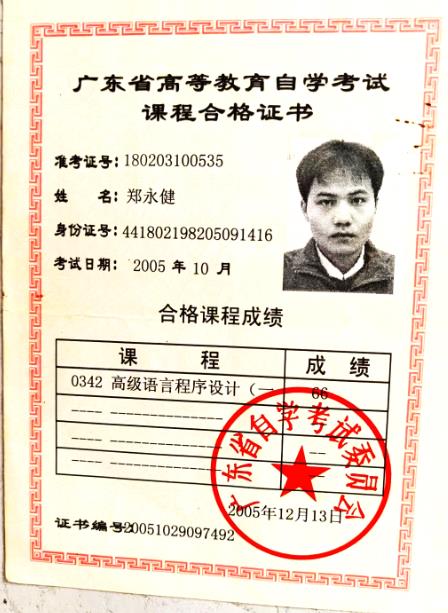 广东省高等教育自学考试
课程合格证书
准考证号:180203100535
姓 名:郑永健
身份证号:441802198205091416
考试日期: 2005 年 10 月
合格课程成绩
课 程 成 绩
0342 高级语言程序设计（一 66
---- --------------
---- -------------- --
---- -------------- --
广东省自学考试委员会
2005年12月13日
证书编号:20051029097492